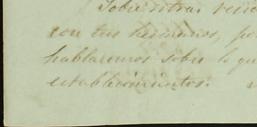 Sobre otras
con tus hermanos, po
hablaremos sobre lo qu
establecimientos.